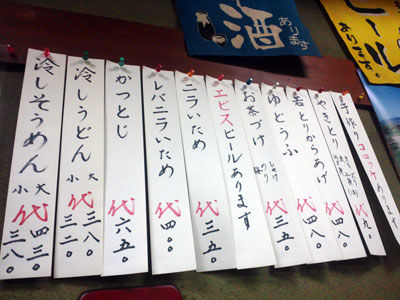 酒
あります
ビール
あります。
手作りコロッケあります
代九〇
やきとり
代四八〇
若とりからあげ
代四八〇
ゆどうふ
代三五〇
お茶づけ
しゃけ
のり
エビスビールあります
ニラいため
代三五〇
レバニラいため
代四〇〇
かつとじ
代六五〇
冷しうどん
大
小
代三八〇
三二〇
冷しそうめん
大
小
代四三〇
三八〇